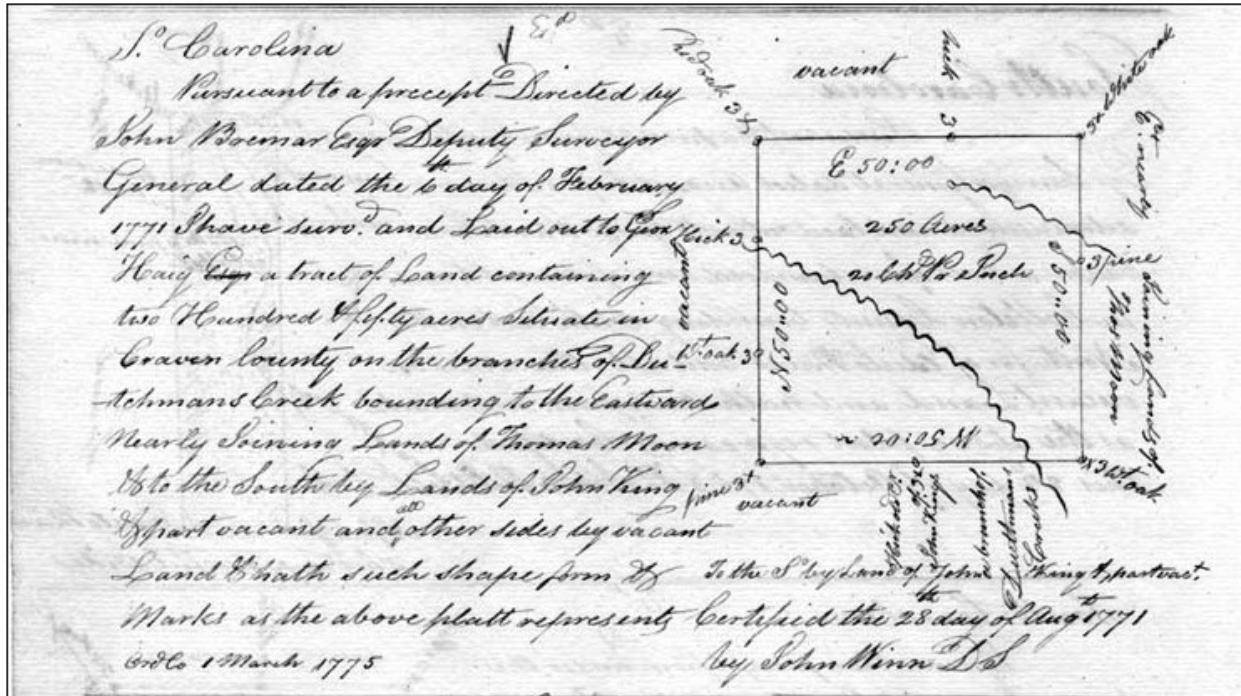 So. Carolina
Pursuant to a precept Directed by
John Bremar Esqr Deputy Surveyor
General dated the 6th day of February
1771 I have survd. and Laid out to Geor
Haig Esqr a tract of Land containing
two Hundred & fifty acres Situate in
Craven County on the branches of Du-
-tchmans Creek bounding to the Eastward
Nearly Joining Lands of Thomas Moon
& to the South by Lands of John King
& part vacant and all other sides by vacant
Land & hath such shape form &
Marks as the above platt represents
Ord Co 1 March 1775
Red oak 3x
vacant
hick 3
3x White oak
E 50:00
250 Acres
20 Chs. Pr Inch
hick 3
vacant
N 50:00
Wt. oak 3
S 50:00
3 pine
Et. nearly
Joining Lands of
Thos Moon
W 50:00
pine 3x
vacant
John Kings
a branch of
Dutchmans
Creek
x3 Wt. oak
To the So. by Land of John King & part vact.
Certified the 28th day of Augt 1771
by John Winn D S